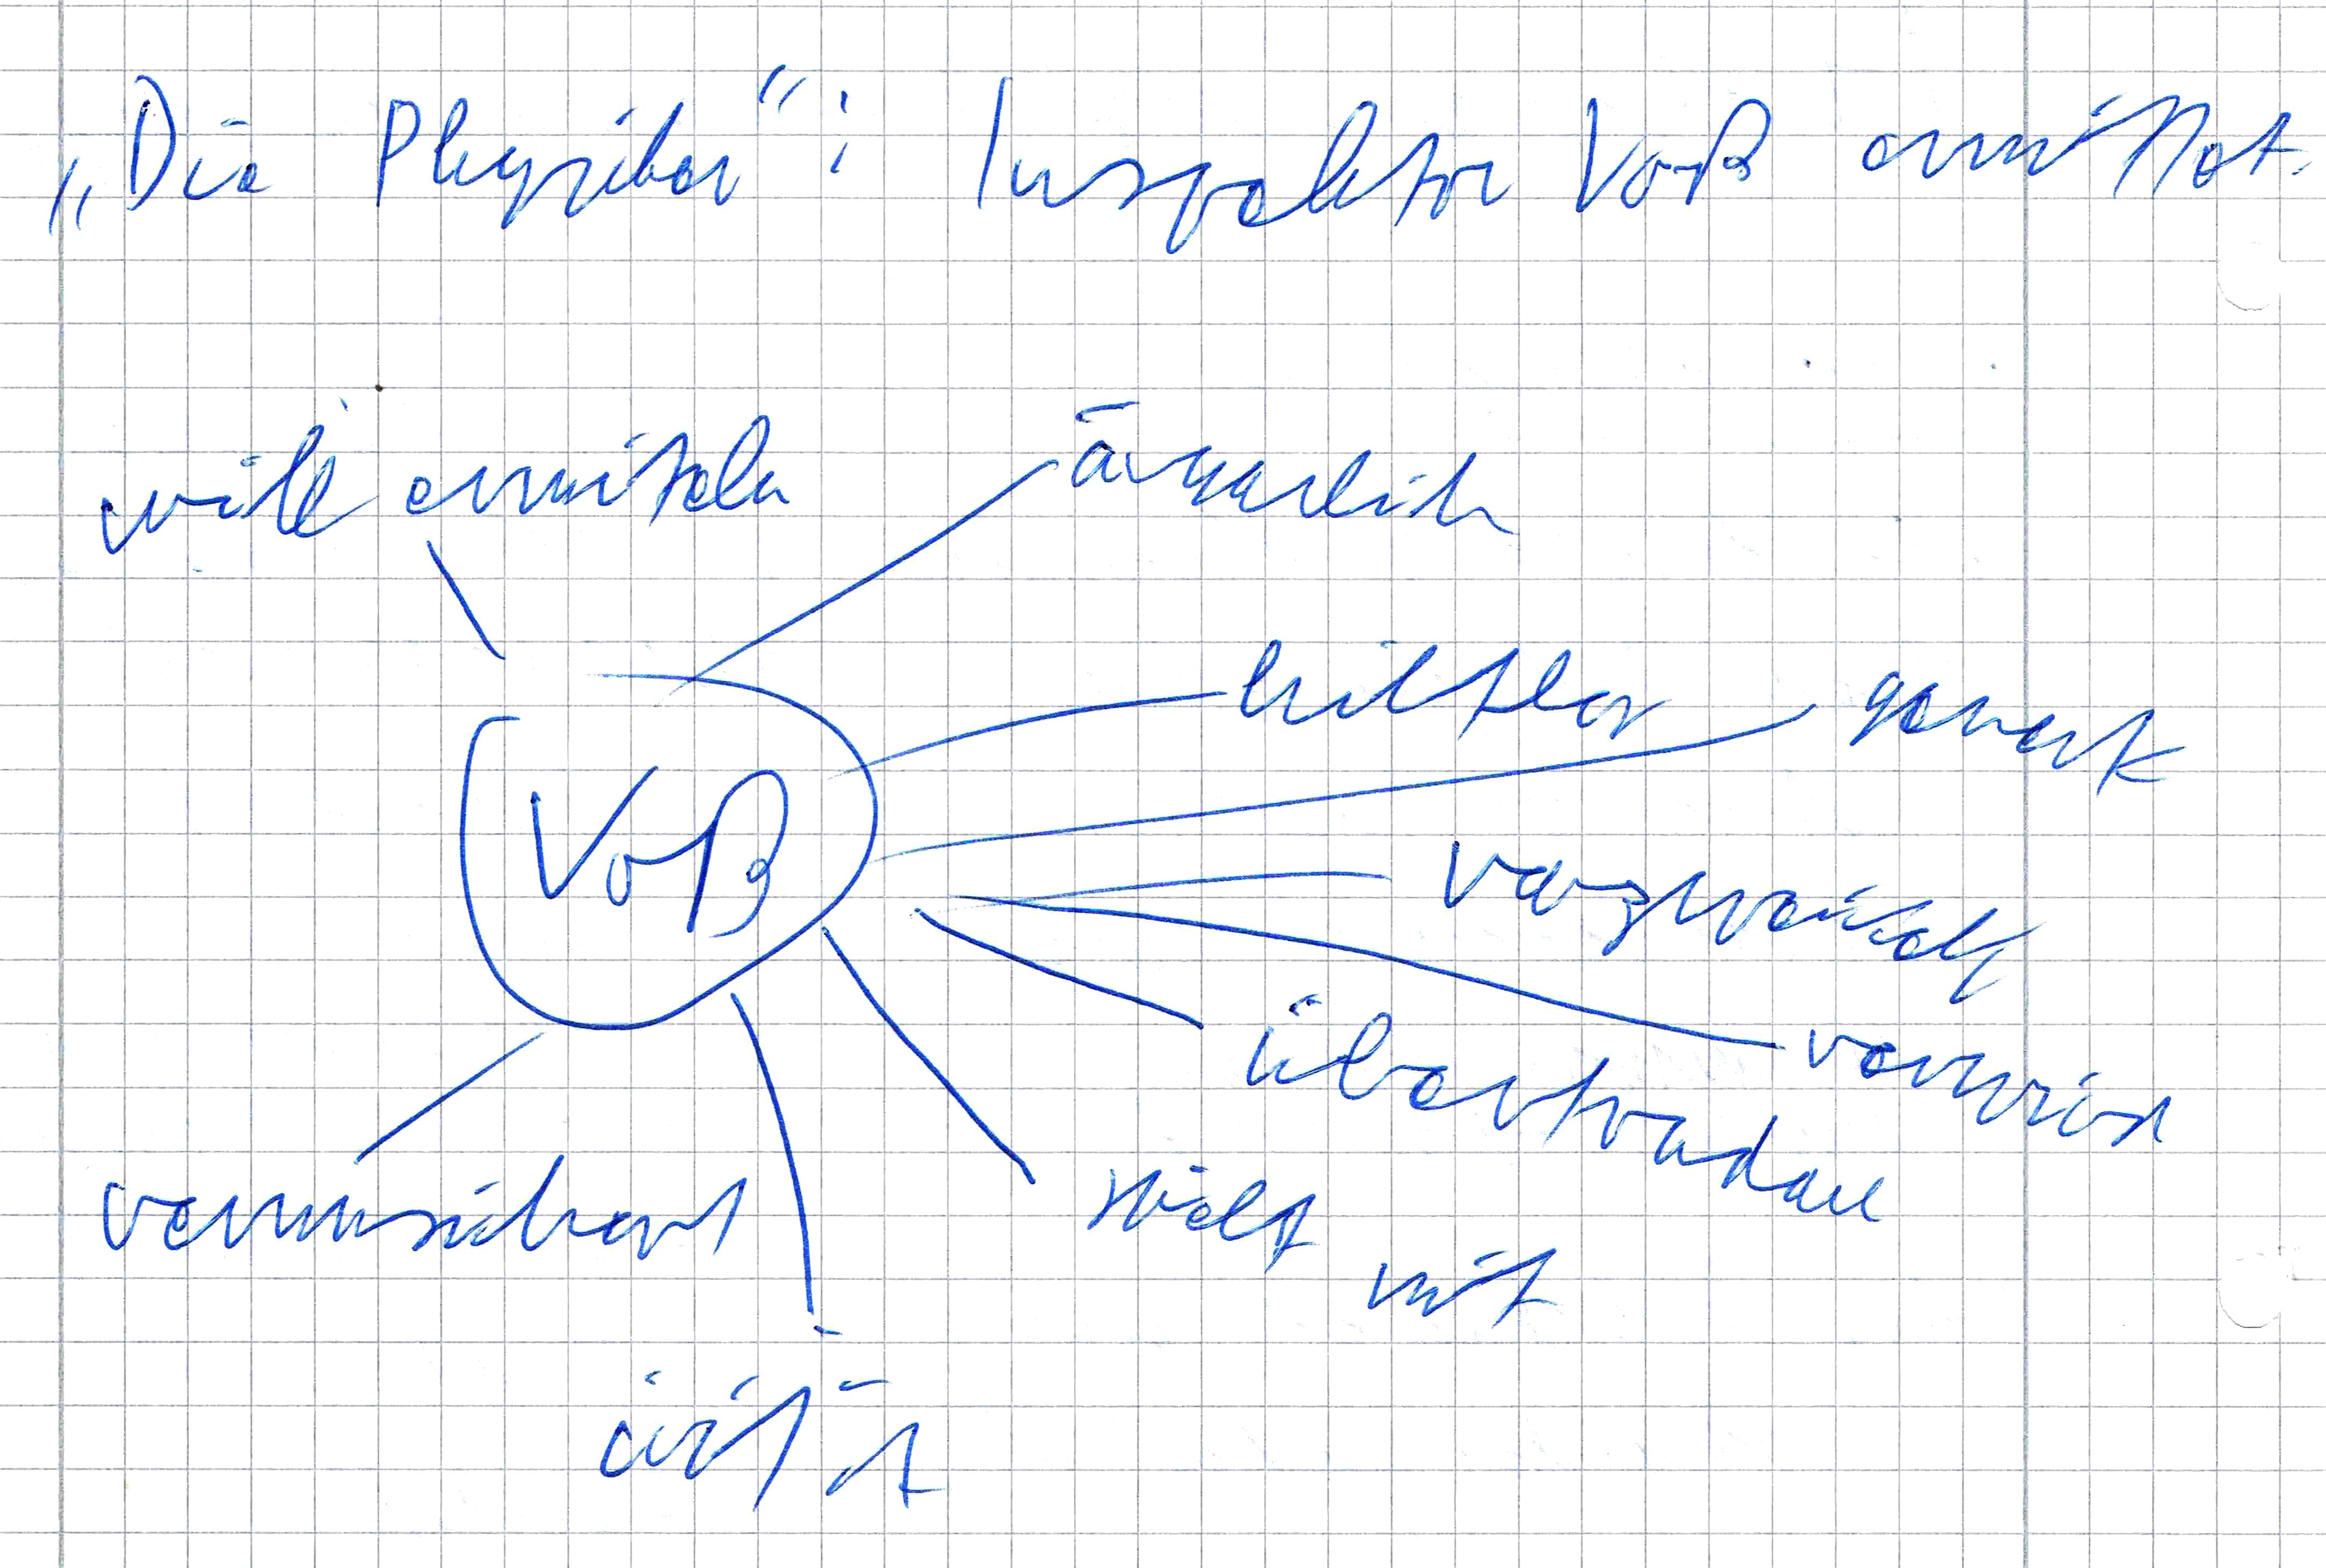 „Die Physiker“: Inspektor Voß ermittelt.
will ermitteln
ärgerlich
hilflos
genervt
Voß
verzweifelt
überfordert
verwirrt
verunsichert
spielt mit